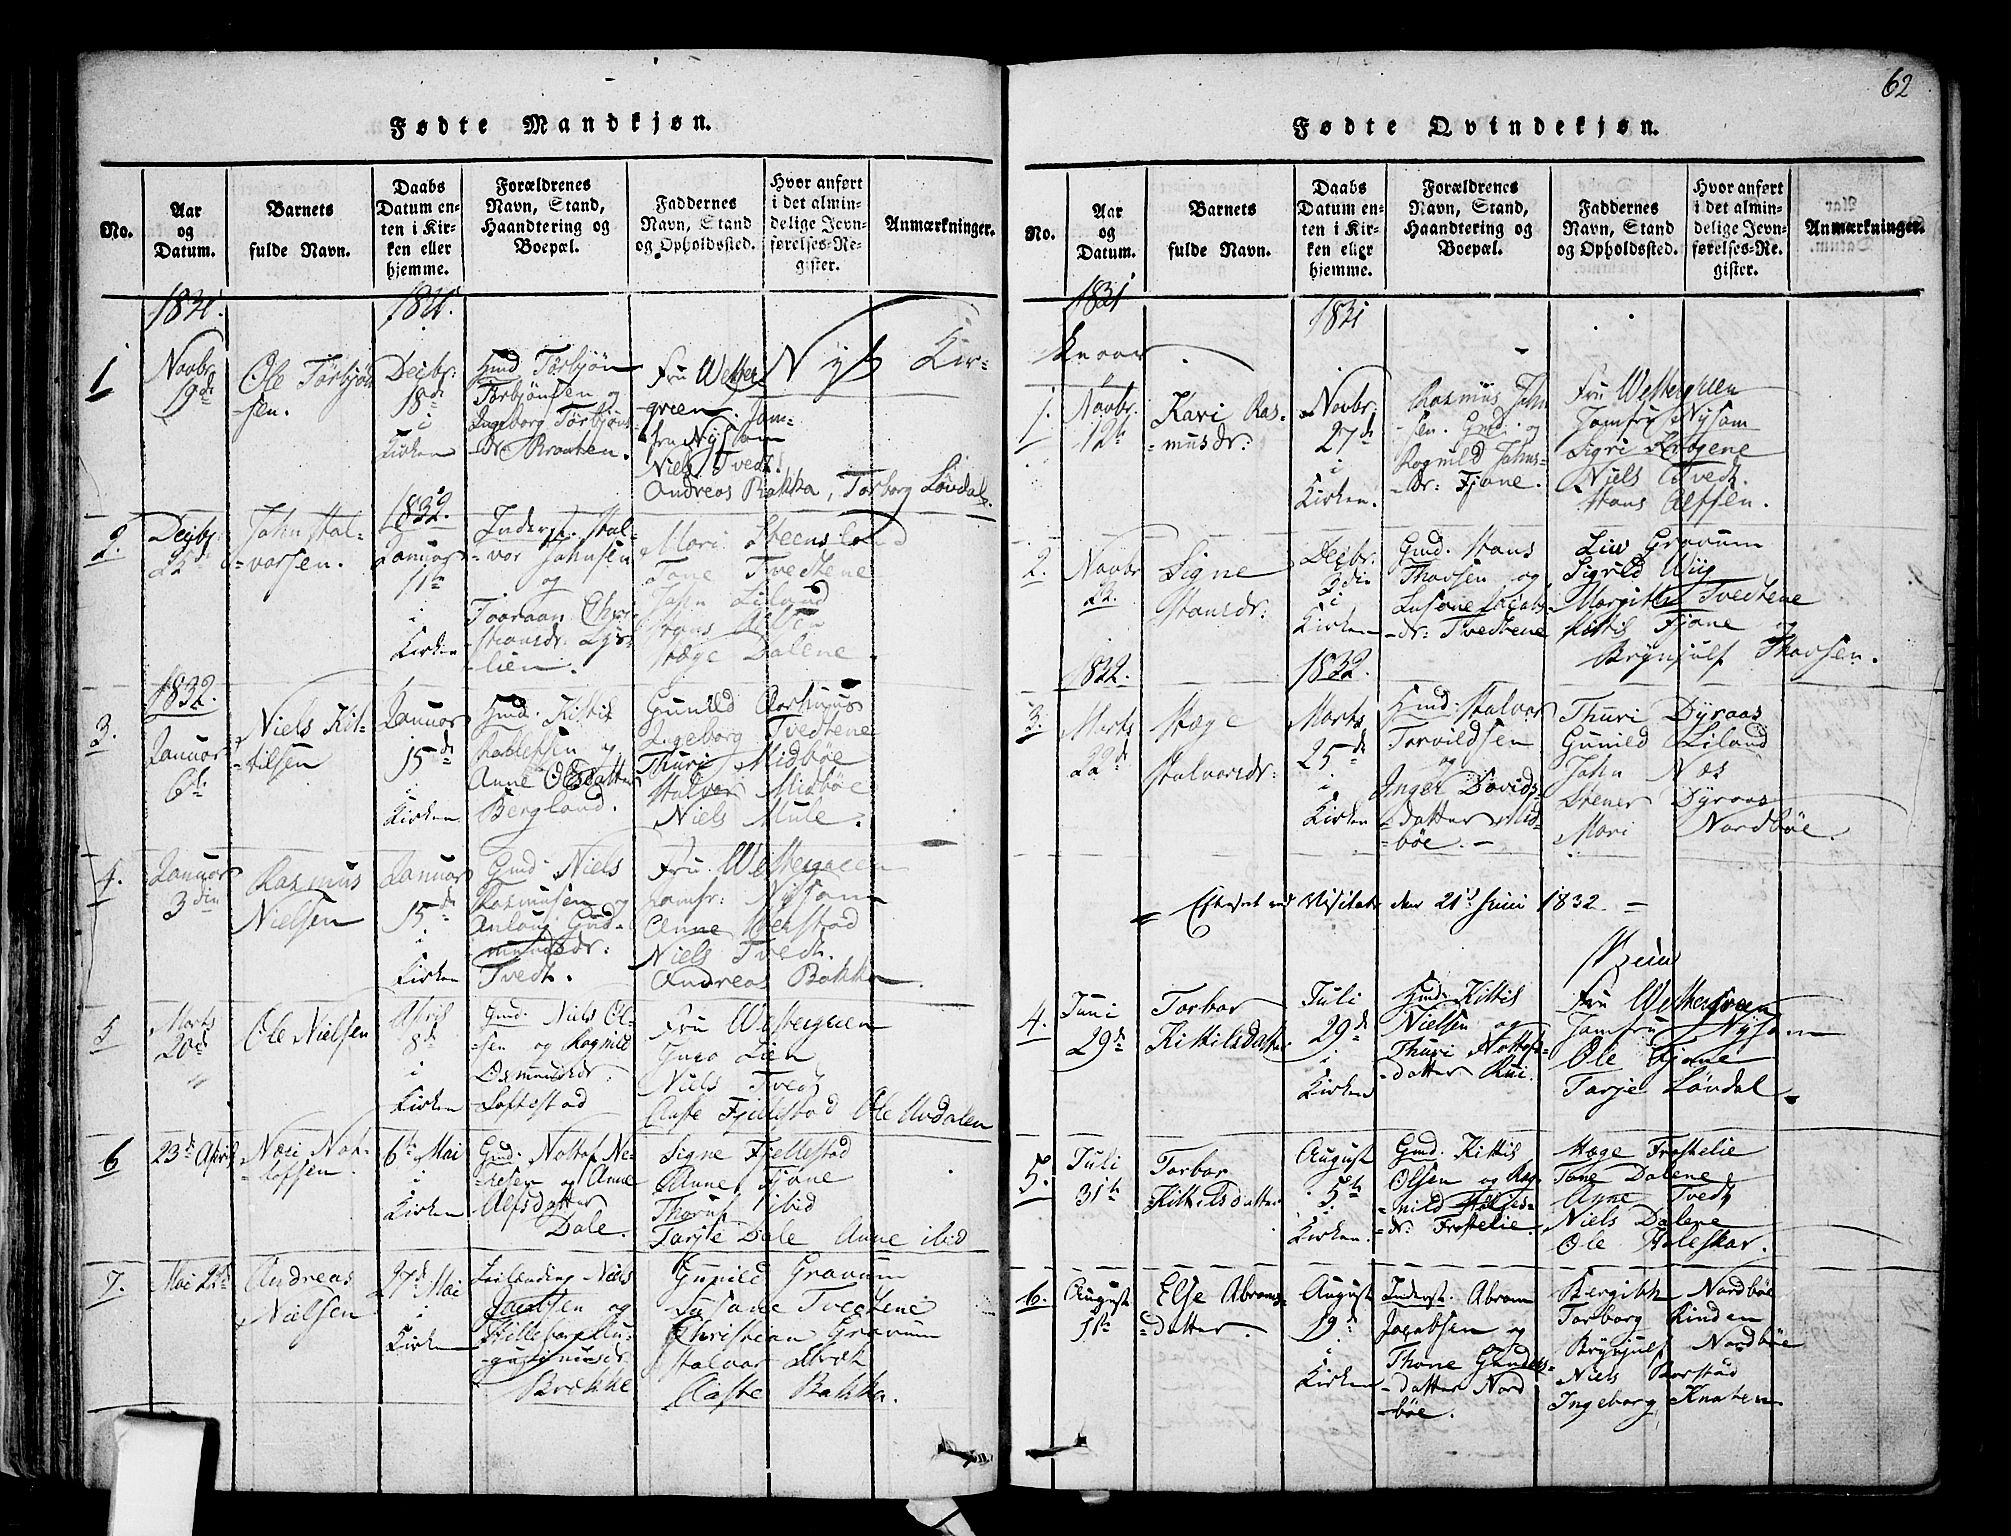 62
Fødte Mandkjøn.
No.
Aar
og
Datum.
Barnets
fulde Navn.
Daabs
Datum en-
ten i Kir-
ken eller
hjemme.
Forældrenes
Navn, Stand,
Haandtering og
Boepæl.
Faddernes
Navn, Stand
og Opholdssted.
Hvor anført
i det almin-
delige Jevn-
førelses-Re-
gister.
Anmærkninger.
1831.
1831.
Nyt Kir-
1
Novbr
19de
Ole Torbjøn
-sen.
Decbr:
18de
i
Kirken
Gmd Torbjøn
Torbjønsen og
Ingeborg Torbjøns
dr Braaten.
Fru Wester
green. Jom-
fru Nysom
Niels Tvedt.
Andreas Bakka, Torborg Løvdal.
2.
John Hal-
-vorsen.
1832.
Januar
i
Kirken
Inderst. Hal-
-vor Johnsen
og
-lien.
Mari Steensland
Tone Tvedtene
John Liland
Hæge Dalene
1832.
3.
Januar
6te
Niels Kit-
-tilsen
Januar
15de
i
Kirken
Gmd. Kittil
og
Anne Olsdatter
Bergland.
Gunild Aarhuus
Ingeborg Tvedtene
Thuri Midbøe
Halvor Midbøe
Niels Mule.
4.
Januar
3die
Rasmus
Nielsen
Januar
15de
i
Kirken
Gmd. Niels
Rasmusen og
Gud-
-mundsdr:
Tvedt.
Fru. Westergreen
Jomfr: Nysom
Anne
Niels Tvedt.
Andreas Bakka.
5
Marts
20de
Ole Nielsen
April
8de
i
Kirken
Gmd. Niels Ol-
-sen og Ragnild
Osmundsdr:
Loftestad
Fru Westergreen
Guro Lien
Niels Tvedt
Aaste Fjellestad Ole Uvdalen
6
23de April
Næri Not-
-tolfsen.
6te Mai
i
Kirken
Gmd. Nottof Ne-
-resen og Anne
Alfsdatter
Dale.
Signe Fjellestad
Anne Fjone
ibid
Tarjte Dale Anne ibid
7.
Mai
Andreas
Nielsen
27de Mai
i
Kirken
Niels
Jacobsen og
Au-
-gustinusdr
Brække
Gunild Gravum
Susane Tvedtene
Christian Gravum
Halvor
Aaste Bakka.
Fødte Qvindekjøn.
No.
Aar
og
Datum.
Barnets
fulde Navn.
Daabs
Datum en-
ten i Kir-
ken eller
hjemme.
Forældrenes
Navn, Stand,
Haandtering og
Boepæl.
Faddernes
Navn, Stand
og Opholdssted.
Hvor anført
i det almin-
delige Jevn-
førelses-Re-
gister.
Anmærkninger.
1831
1831
1.
Novbr.
12te
Kari Ras-
-musdr:
Novbr.
27de
i
Kirken.
Rasmus John
-sen. Gmd. og
Ragnild Johns-
-dr: Fjone.
Fru Westergreen
Jomfru Nysom
Sigri
Niels Tvedt.
Hans Alfsen.
2.
Novbr
22.
Signe
Hansdr:
Decbr.
3die
i
Kirken
Gmd. Hans
Thovsen og
Susane Jacobs
-dr: Tvedtene
Liv Gravum
Sigrid Wiig
Margith Tvedtene
Kittil Fjone og
Brynjulf Thovsen.
1832.
1832.
3.
Marts
22de
Hæge
Halvorsdr:
Marts
25de
i
Kirken
Gmd. Halvor
Torvildsen
og
Inger Davids-
-datter Mid-
-bøe. -
Thuri Dyraas
Gunild Liland
John Næs
Stener Dyraas
Mari Nordbøe.
= Efterseet ved Visitats den 21de Juni 1832. =
4.
Juni
29de
Torbor
Kittilsdatter
Juli
29de
i
Kirken
Gmd. Kittil
Nielsen og
Thuri Nottofs-
-datter Rui.
Fru Westergreen
Jomfru Nysom
Ole Fjone
Tarje Løvdal.
5.
Juli
31te
Torbor
Kittilsdatter
August
5te
i
Kirken.
Gmd. Kittil
Olsen og Rag-
-nild
-dr: Frostelie.
Hæge Frostelie
Tone Dalene
Anne Tvedt
Niels Dalene
Ole Haleskar.
6.
August
1ste
Else Abrams-
-datter.
August
19de
i
Kirken
Inderst. Abram
Jacobsen og
Thone Gunders-
-datter Nord
-bøe.
Bergith Nordbøe
Torborg Rinden
Brynjulf Nordbøe
Niels Borstad
Ingeborg Knaten